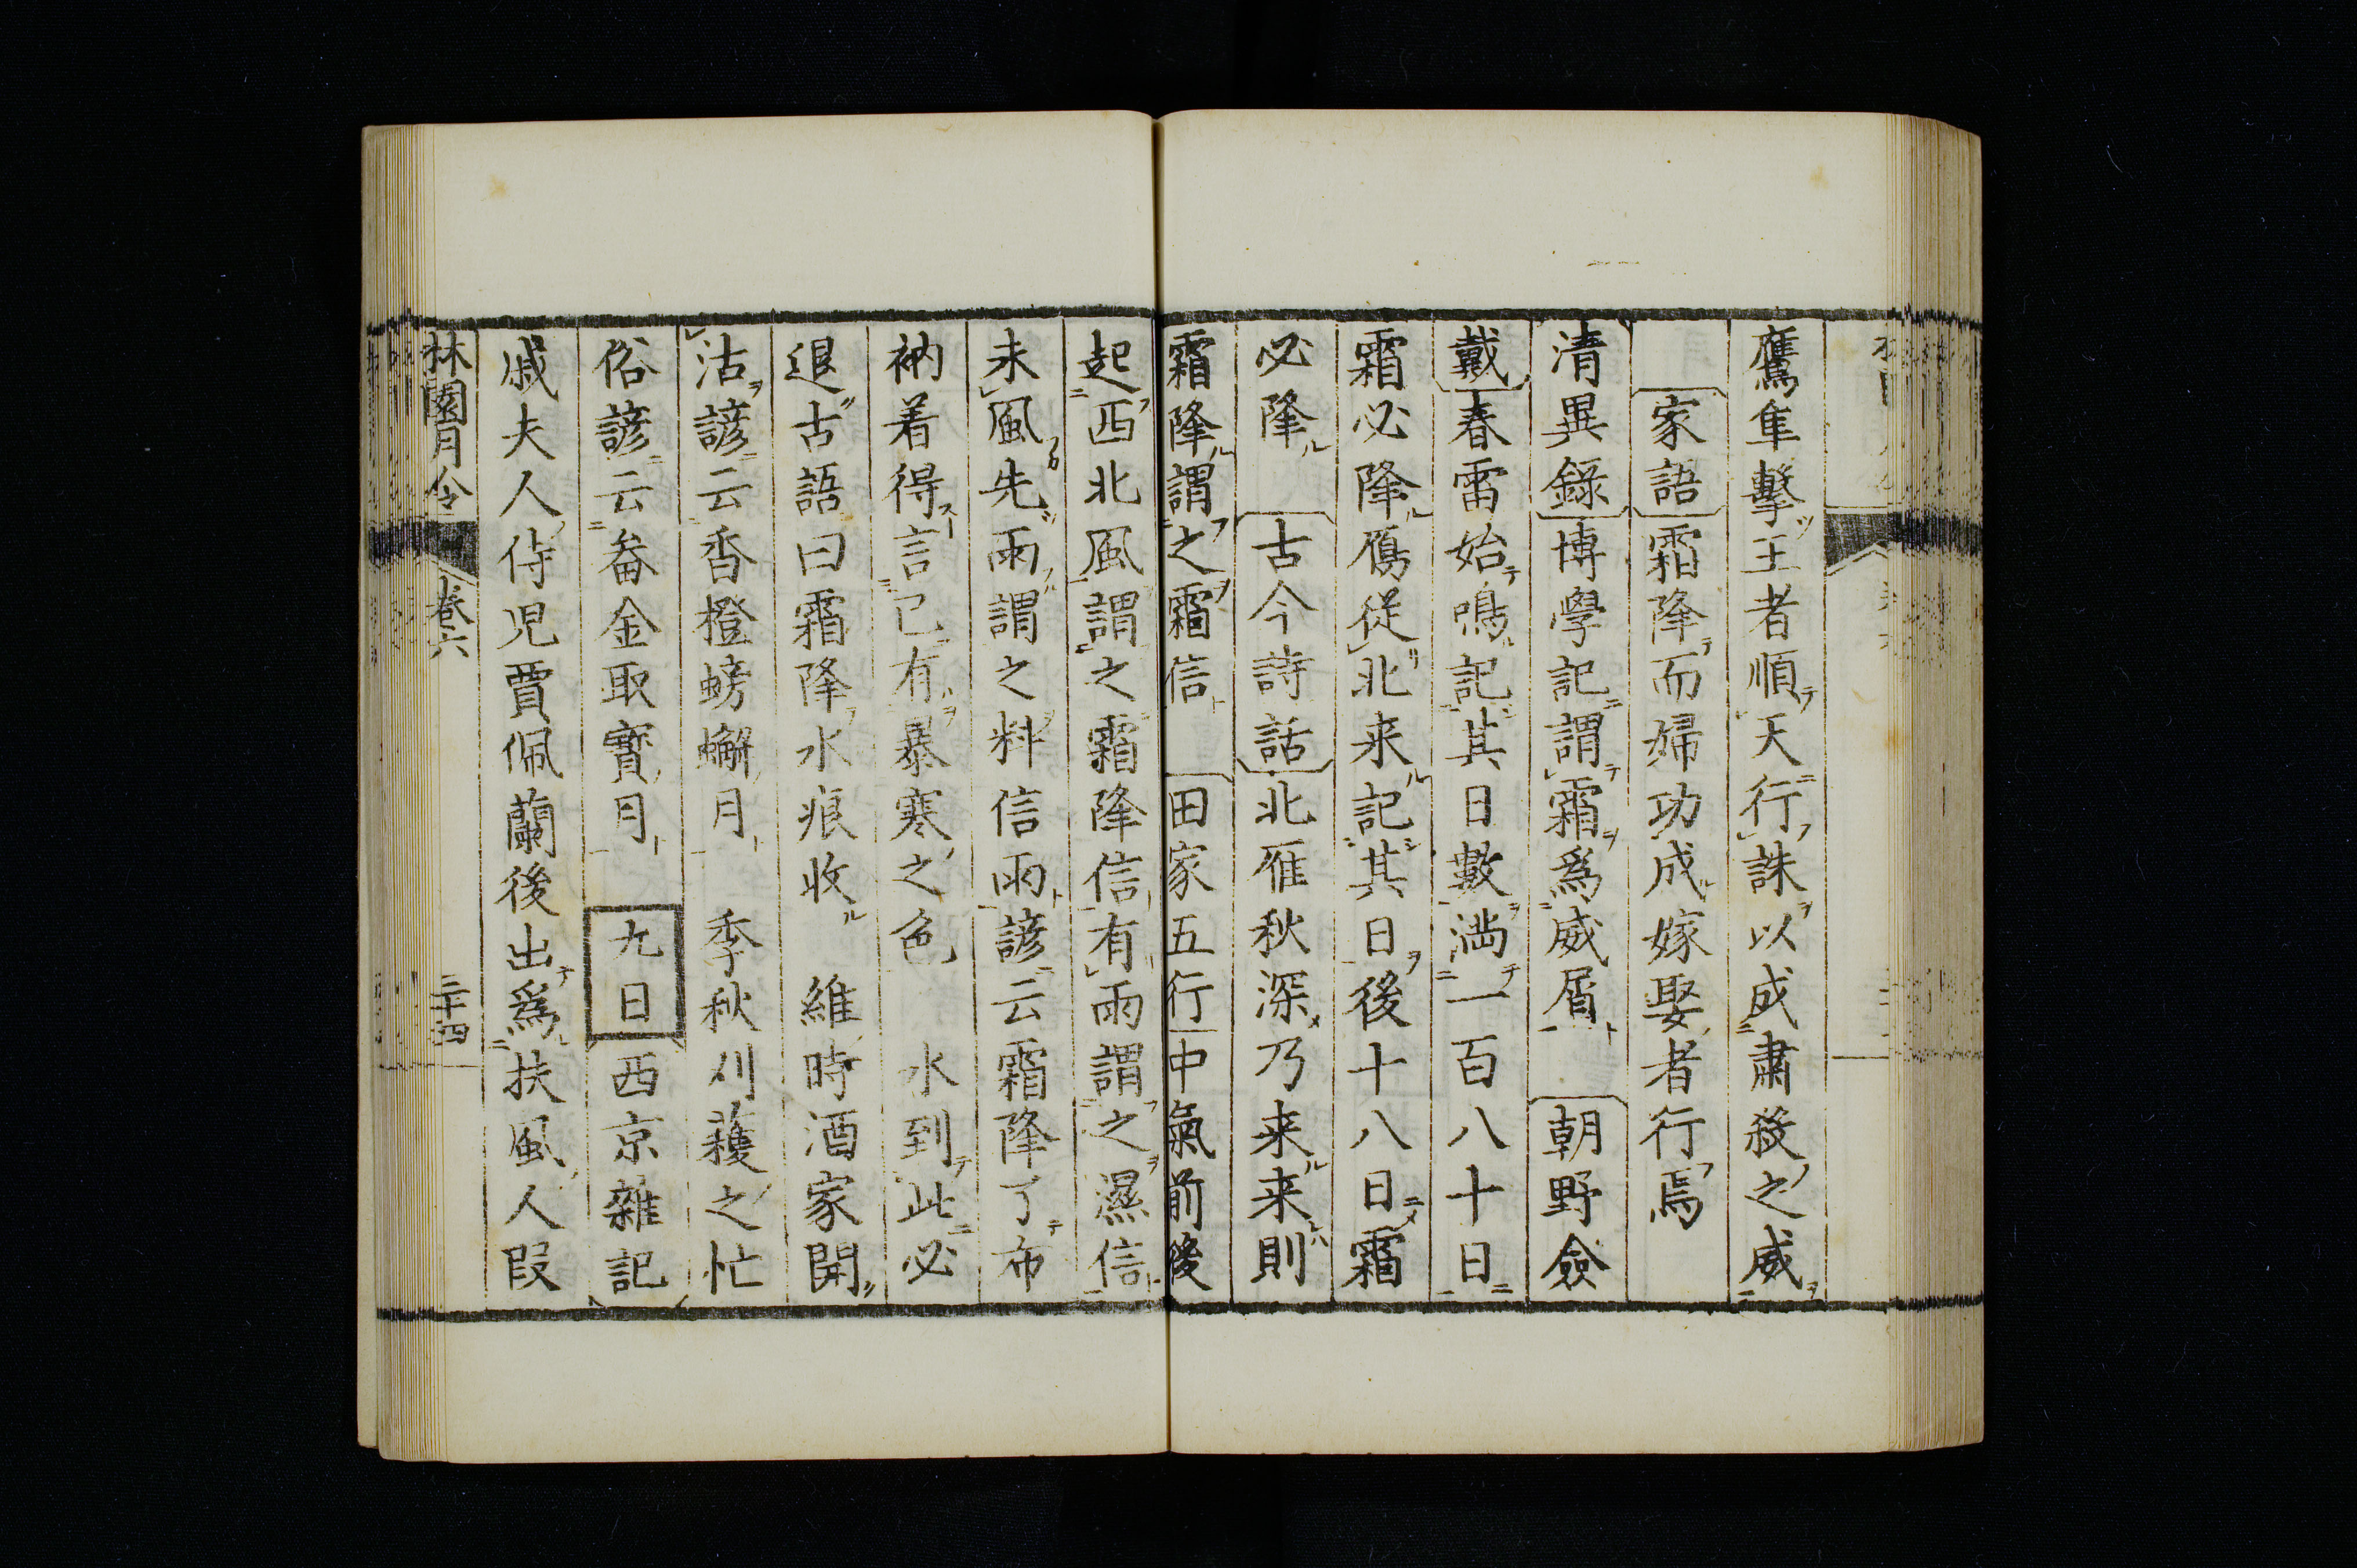 鷹隼擊王者順天行誅以成肅殺之威
家語霜降而婦功成嫁娶者行焉
清異錄博學記謂霜爲威屑　朝野僉
戴春雷始鳴記其日數満一百八十日
霜必降鴈從北来記其日後十八日霜
必降　古今詩話北雁秋深乃来来則
霜降謂之霜信　田家五行中氣前後
起西北風謂之霜降信有雨謂之濕信
未風先雨謂之料信雨諺云霜降了布
衲着得言已有暴寒之色　水到此必
退古語曰霜降水痕收　維時酒家開
沽諺云香橙螃蠏月　季秋刈穫之忙
俗諺云畚金取寳月　九日西京雜記
戚夫人侍児賈佩蘭後出爲扶風人段
林園月令　卷六　三十四